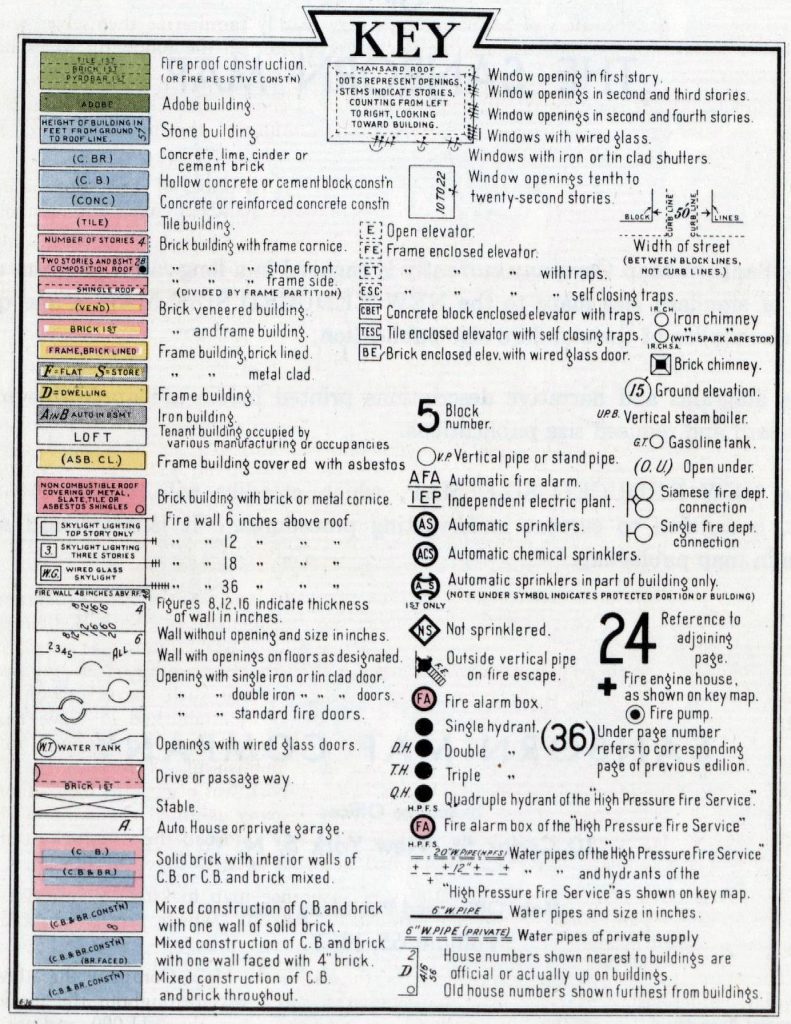 KEY
TILE 1ST
BRICK 1ST
PYROBAR 1ST
Fire proof construction.
(OR FIRE RESISTIVE CONST'N)
ADOBE
Adobe building.
HEIGHT OF BUILDING IN
FEET FROM GROUND
TO ROOF LINE.
Stone building
(C. BR.)
Concrete, lime, cinder or
cement brick
(C. B.)
Hollow concrete or cement block const'n
(CONC)
Concrete or reinforced concrete const'n
(TILE)
Tile building.
NUMBER OF STORIES 4
Brick building with frame cornice.
TWO STORIES AND BSMT
COMPOSITION ROOF
28
" " stone front.
" " frame side.
SHINGLE ROOF X
(DIVIDED BY FRAME PARTITION)
(VEND)
Brick veneered building.
BRICK 1ST
" and frame building.
FRAME, BRICK LINED
Frame building, brick lined.
F=FLAT S=STORE
" " metal clad.
D=DWELLING
Frame building.
A IN B AUTO IN BSMT
Iron building.
LOFT
Tenant building occupied by
various manufacturing or occupancies
(ASB. CL.)
Frame building covered with asbestos
NON COMBUSTIBLE ROOF
COVERING OF METAL,
SLATE, TILE OR
ASBESTOS SHINGLES
Brick building with brick or metal cornice.
SKYLIGHT LIGHTING
TOP STORY ONLY
Fire wall 6 inches above roof.
3. SKYLIGHT LIGHTING
THREE STORIES
" " 12 " " "
" " 18 " " "
W.G. WIRED GLASS
SKYLIGHT
" " 36 " " "
FIRE WALL 48 INCHES ABV. RF.
Figures 8, 12, 16 indicate thickness
of wall in inches.
4
Wall without opening and size in inches.
6
2345
ALL
Wall with openings on floors as designated.
Opening with single iron or tin clad door.
" " double iron " " " doors.
" " standard fire doors.
W.T. WATER TANK
Openings with wired glass doors.
BRICK 1ST
Drive or passage way.
Stable.
A.
Auto. House or private garage.
(C. B.)
(C.B & BR.)
Solid brick with interior walls of
C.B. or C.B. and brick mixed.
(C.B. & BR. CONST'N)
8
Mixed construction of C.B. and brick
with one wall of solid brick.
(C.B. & BR. CONST'N)
(BR. FACED)
Mixed construction of C.B. and brick
with one wall faced with 4" brick.
(C.B. & BR. CONST'N)
Mixed construction of C.B.
and brick throughout.
MANSARD ROOF
DOTS REPRESENT OPENINGS,
STEMS INDICATE STORIES,
COUNTING FROM LEFT
TO RIGHT, LOOKING
TOWARD BUILDING.
Window opening in first story.
Window openings in second and third stories.
Window openings in second and fourth stories.
Windows with wired glass.
Windows with iron or tin clad shutters.
10 TO 22
Window openings tenth to
twenty-second stories.
BLOCK
CURB LINE
50'
CURB LINE
LINES
Width of street
(BETWEEN BLOCK LINES,
NOT CURB LINES.)
E Open elevator.
FE Frame enclosed elevator.
ET " " " with traps.
ESC " " " self closing traps.
CBET Concrete block enclosed elevator with traps.
TESC Tile enclosed elevator with self closing traps.
BE Brick enclosed elev. with wired glass door.
IR.CH.
Iron chimney
" "
(WITH SPARK ARRESTOR)
IR.CH.S.A.
Brick chimney.
15 Ground elevation.
5 Block
number.
U.P.B. Vertical steam boiler.
V.P. Vertical pipe or stand pipe.
G.T. Gasoline tank.
AFA Automatic fire alarm.
(O.U.) Open under.
IEP Independent electric plant.
Siamese fire dept.
connection
AS Automatic sprinklers.
Single fire dept.
connection
ACS Automatic chemical sprinklers.
AS
1ST ONLY
Automatic sprinklers in part of building only.
(NOTE UNDER SYMBOL INDICATES PROTECTED PORTION OF BUILDING)
NS Not sprinklered.
24 Reference to
adjoining
page.
F.E.
Outside vertical pipe
on fire escape.
Fire engine house,
as shown on key map.
FA Fire alarm box.
Fire pump.
Single hydrant.
D.H. Double "
T.H. Triple "
(36) Under page number
refers to corresponding
page of previous edition.
Q.H.
H.P.F.S.
Quadruple hydrant of the "High Pressure Fire Service."
FA
H.P.F.S
Fire alarm box of the "High Pressure Fire Service"
20" W.PIPE (H.P.F.S) Water pipes of the "High Pressure Fire Service"
12" " " and hydrants of the
"High Pressure Fire Service" as shown on key map.
6" W.PIPE Water pipes and size in inches.
6" W.PIPE (PRIVATE) Water pipes of private supply
2
D
416
56
House numbers shown nearest to buildings are
official or actually up on buildings.
Old house numbers shown furthest from buildings.